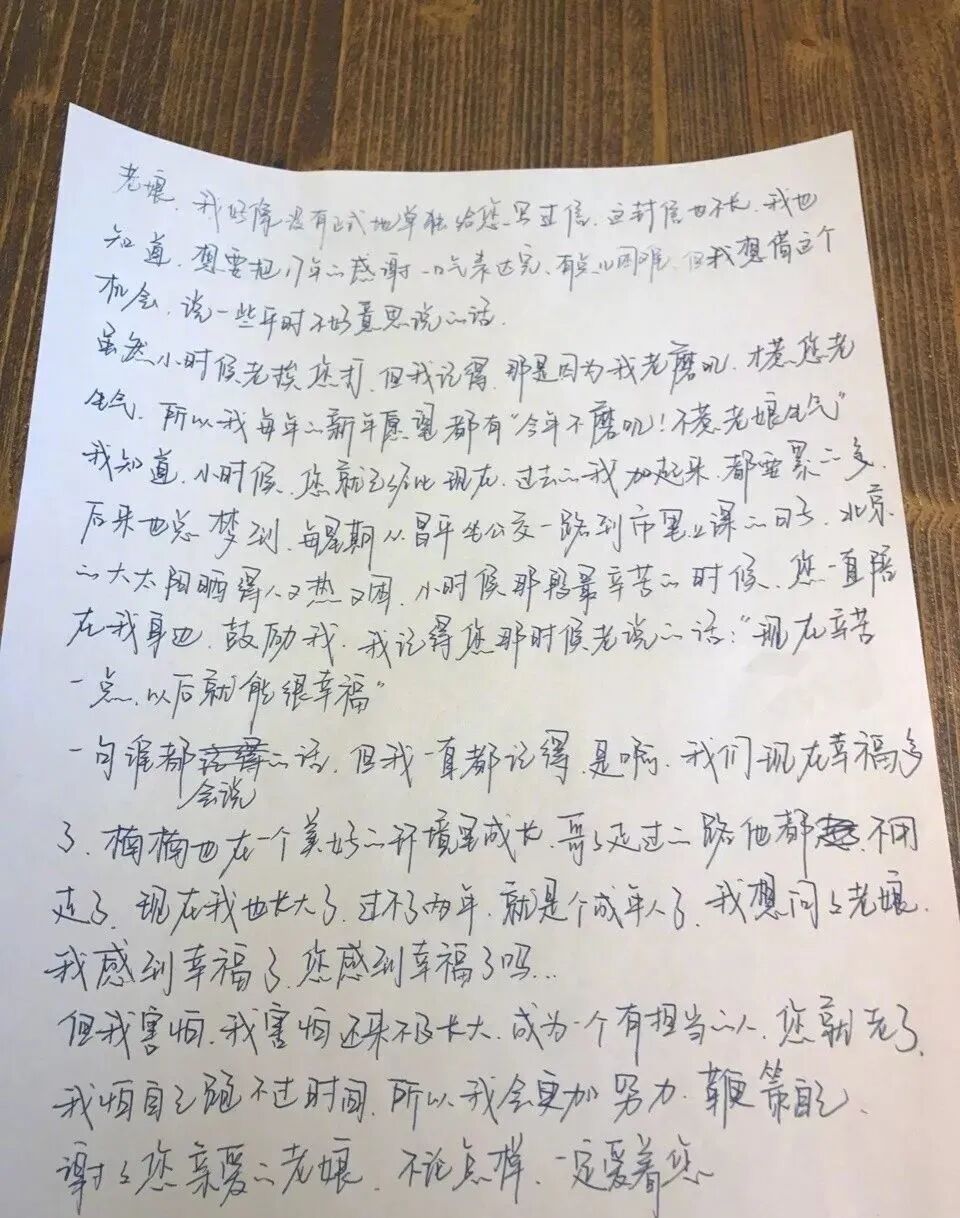 老娘、我好像没有正式地单独给您写过信、这封信也不长、我也
知道、想要把17年的感谢一口气表达完、有点儿困难、但我想借这个
机会、说一些平时不好意思说的话、
虽然小时候老挨您打、但我记得、那是因为我老磨叽、才惹您老
生气、所以我每年的新年愿望都有“今年不磨叽！不惹老娘生气”
我知道、小时候、您就已经比现在、过去的我加起来、都要累的多、
后来也总梦到、每星期从昌平坐公交一路到市里上课的日子、北京
的大太阳晒得人又热又困、小时候那段最辛苦的时候、您一直陪
在我身边、鼓励我、我记得您那时候老说的话：“现在辛苦
一点、以后就能很幸福”
一句谁都会说的话、但我一直都记得、是啊、我们现在幸福多
了、楠楠也在一个美好的环境里成长、哥哥走过的路他都不用
走了、现在我也长大了、过不了两年、就是个成年人了、我想问问老娘、
我感到幸福了、您感到幸福了吗...
但我害怕、我害怕还来不及长大、成为一个有担当的人、您就老了、
我怕自己跑不过时间、所以我会更加努力、鞭策自己、
谢谢您亲爱的老娘、不论怎样、一定爱着您